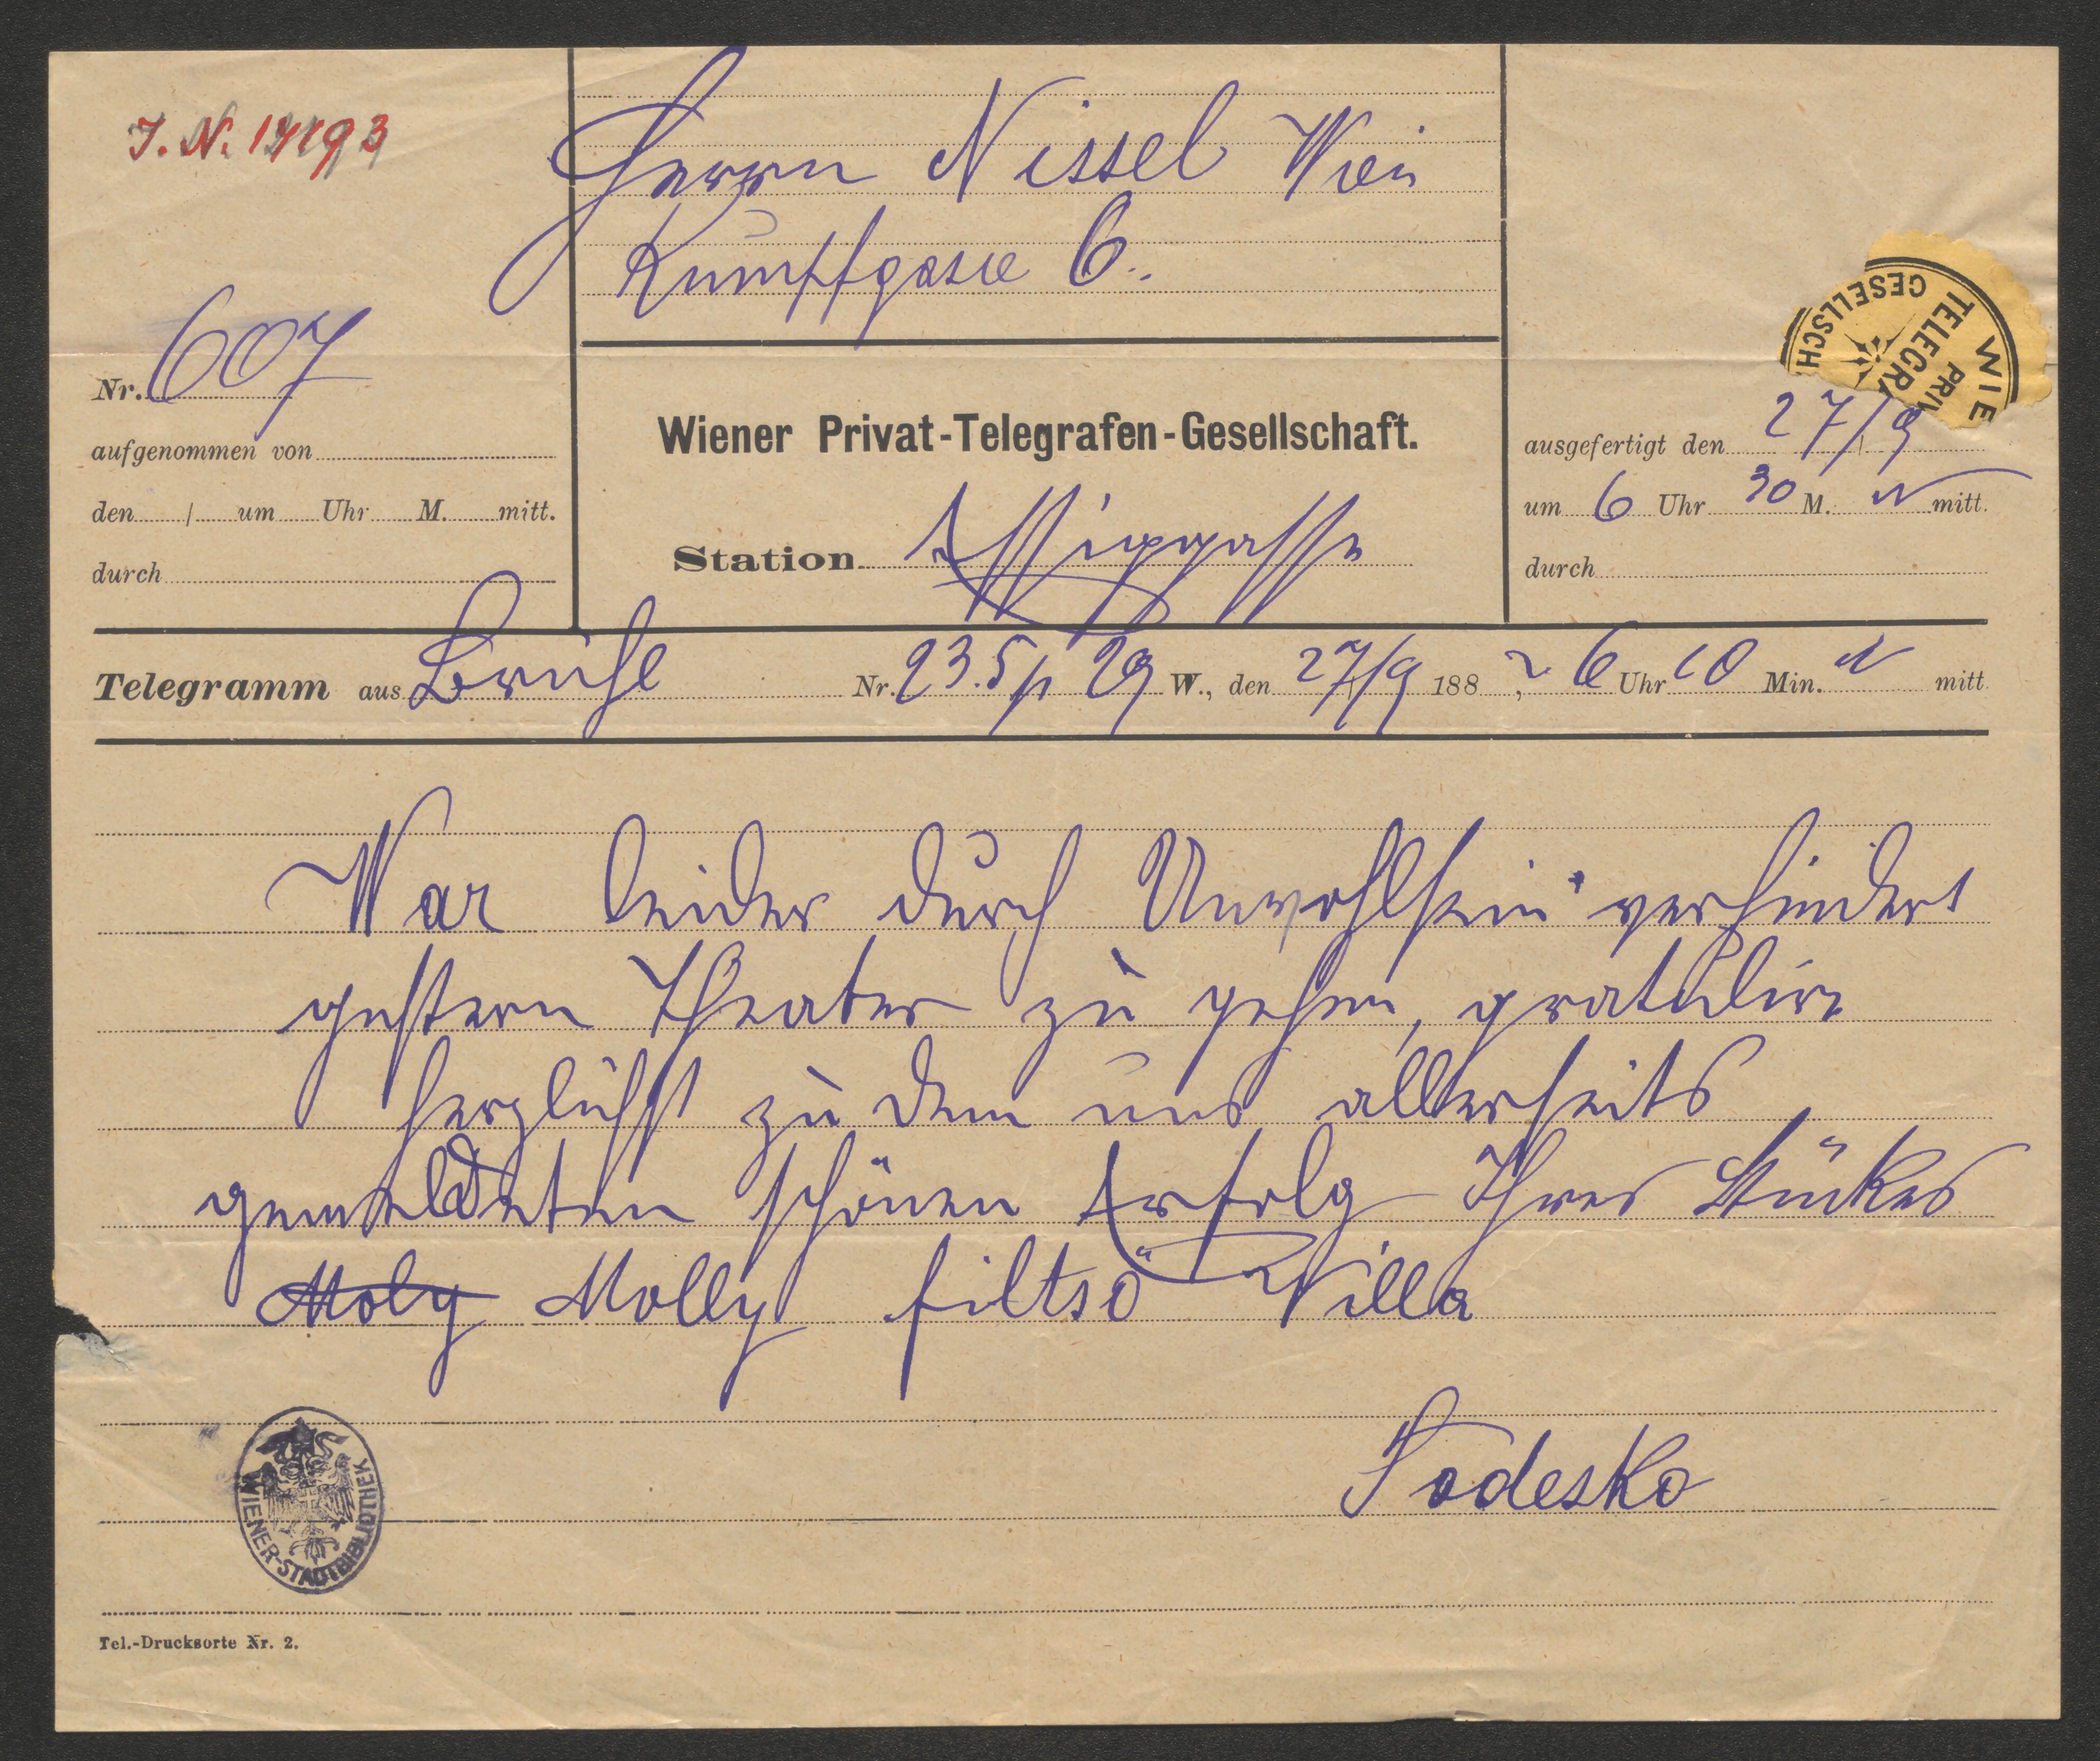 J. N. 17193
Herrn Nissel Wien
Kumpfgasse 6.
Nr. 607
aufgenommen von
den / um Uhr M. mitt.
durch
Wiener Privat-Telegrafen-Gesellschaft.
Station
WIE
PRIV
TELEGRA
GESELLSCH
ausgefertigt den 27/9
um 6 Uhr 30 M. N mitt.
durch
Telegramm aus Brühl Nr. 23.5p 29 W., den 27/9 188 , 6 Uhr 10 Min. N mitt
War leider durch Unwohlsein verhindert
gestern Theater zu gehen, gratulire
herzlichst zu dem uns allerseits
gemeldeten schönen Erfolg Ihres Stückes
Moly Molly filtsö Villa
Todesko
WIENER-STADTBIBLIOTHEK
Tel.-Drucksorte Nr. 2.